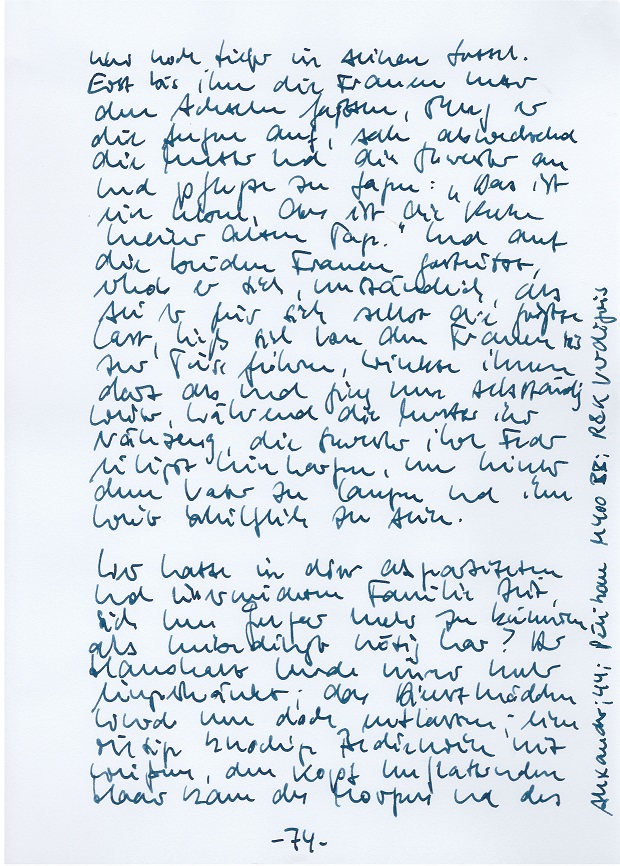 nur noch tiefer in seinen Sessel.
Erst bis ihn die Frauen unter
den Achseln fassten, schlug er
die Augen auf, sah abwechselnd
die Mutter und die Schwester an
und pflegte zu sagen: „Das ist
ein Leben, das ist die Ruhe
meiner alten Tage." Und auf
die beiden Frauen gestützt,
erhob er sich, umständlich, als
sei er für sich selbst die größte
Last, ließ sich von den Frauen bis
zur Türe führen, winkte ihnen
dort ab und ging nun selbständig
weiter, während die Mutter ihr
Nähzeug, die Schwester ihre Feder
eiligst hinwarfen, um hinter
dem Vater zu laufen und ihm
weiter behilflich zu sein.
Wer hatte in dieser abgearbeiteten
und übermüdeten Familie Zeit,
sich um Gregor mehr zu kümmern
als unbedingt nötig war? Der
Haushalt wurde immer mehr
eingeschränkt; das Dienstmädchen
wurde nun doch entlassen; eine
riesige knochige Bedienerin mit
weißem, den Kopf umflatternden
Haar kam des Morgens und des
-74-
Alexander, 44; Pelikan M400 BB; R&K Verdigris